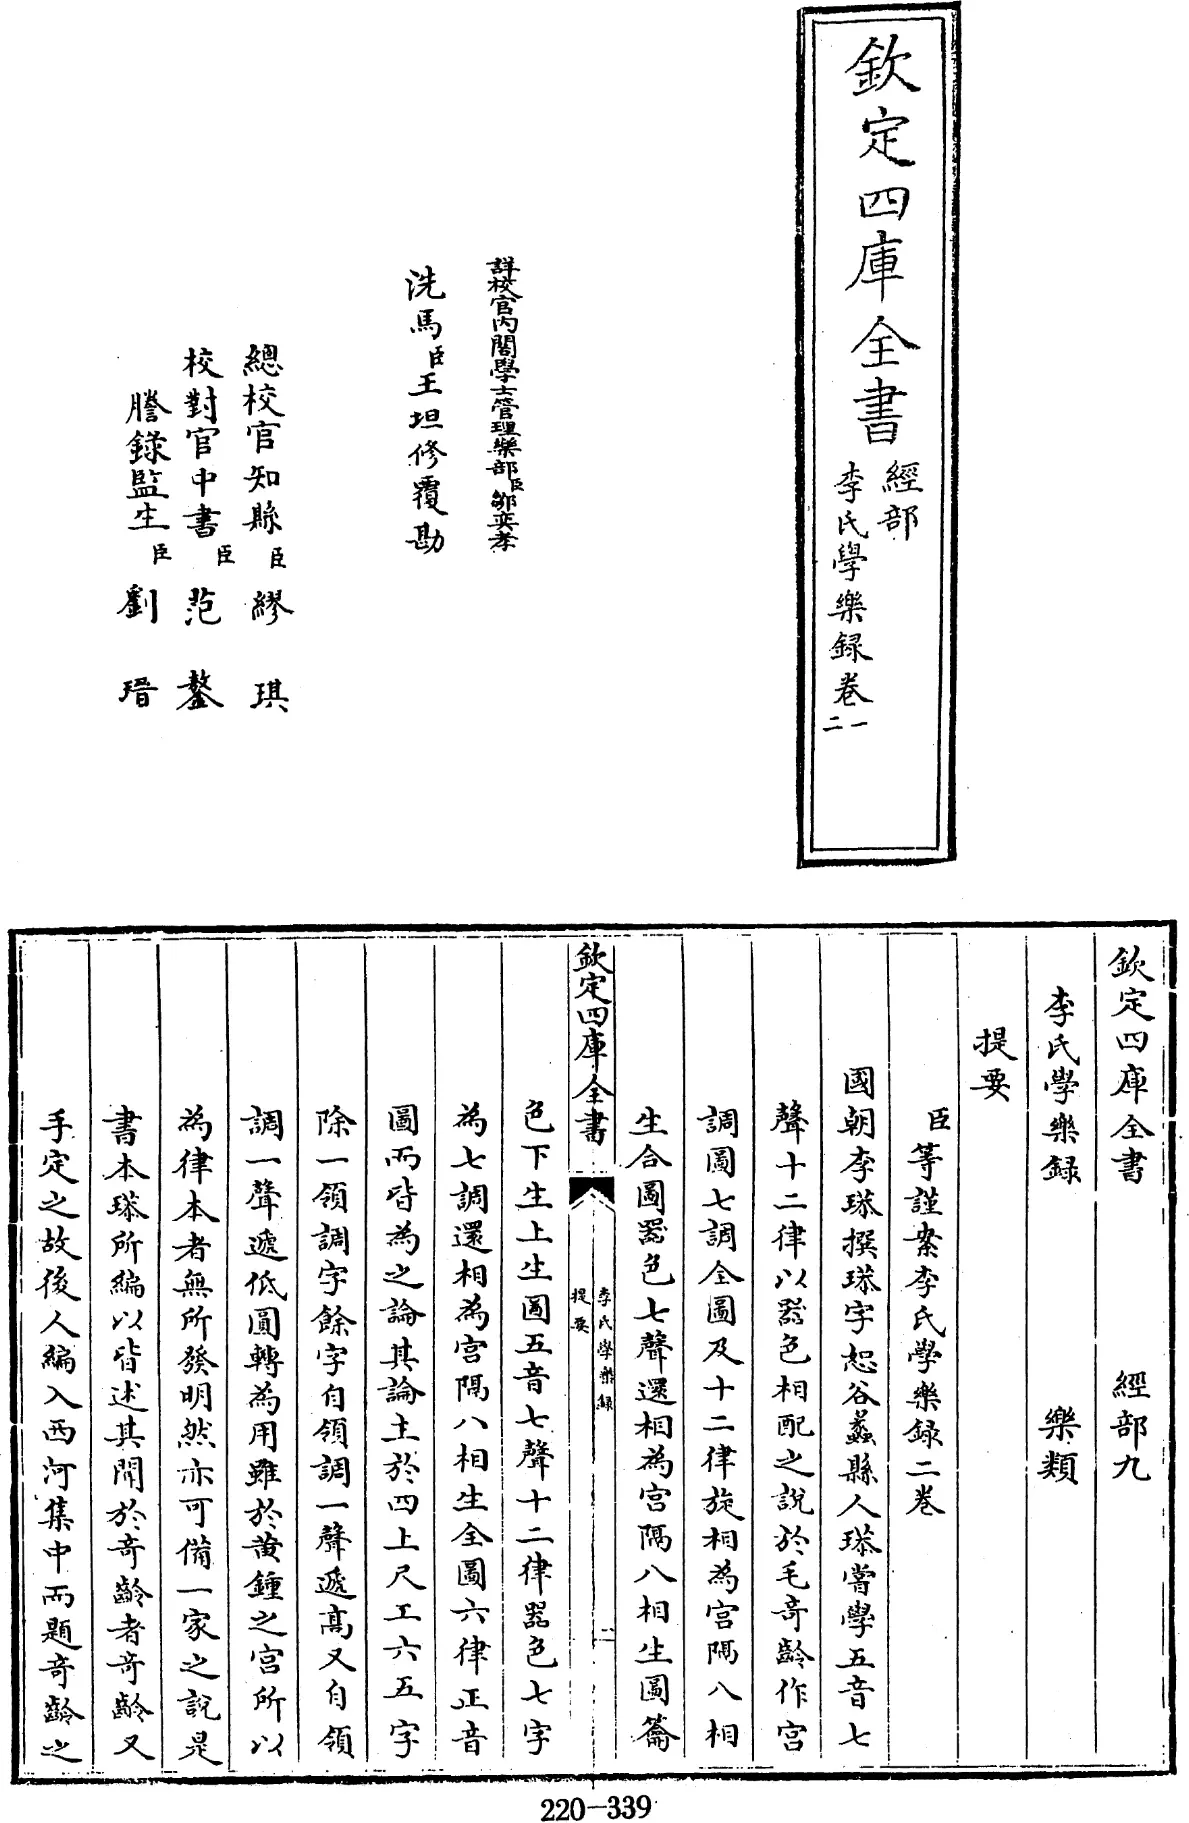 欽定四庫全書
經部
李氏學樂録卷一
二
詳校官内閣學士管理樂部臣鄒奕孝
洗馬臣王坦修覆勘
總校官知縣臣繆琪
校對官中書臣范鏊
謄錄監生臣劉瑨
欽定四庫全書 經部九
李氏學樂録 樂類
提要
臣等謹案李氏學樂録二卷
國朝李塨撰塨字恕谷蠡縣人塨嘗學五音七
聲十二律以器色相配之說於毛竒齡作宮
調圖七調全圖及十二律旋相為宮隔八相
生合圖器色七聲還相為宮隔八相生圖籥
欽定四庫全書
李氏學樂録
提要
二
色下生上生圖五音七聲十二律器色七字
為七調還相為宮隔八相生全圖六律正音
圖而皆為之論其論主於四上尺工六五字
除一領調字餘字自領調一聲遞高又自領
調一聲遞低圓轉為用雖於黄鍾之宮所以
為律本者無所發明然亦可備一家之說是
書本塨所編以皆述其聞於竒齡者竒齡又
手定之故後人編入西河集中而題竒齡之
220-339